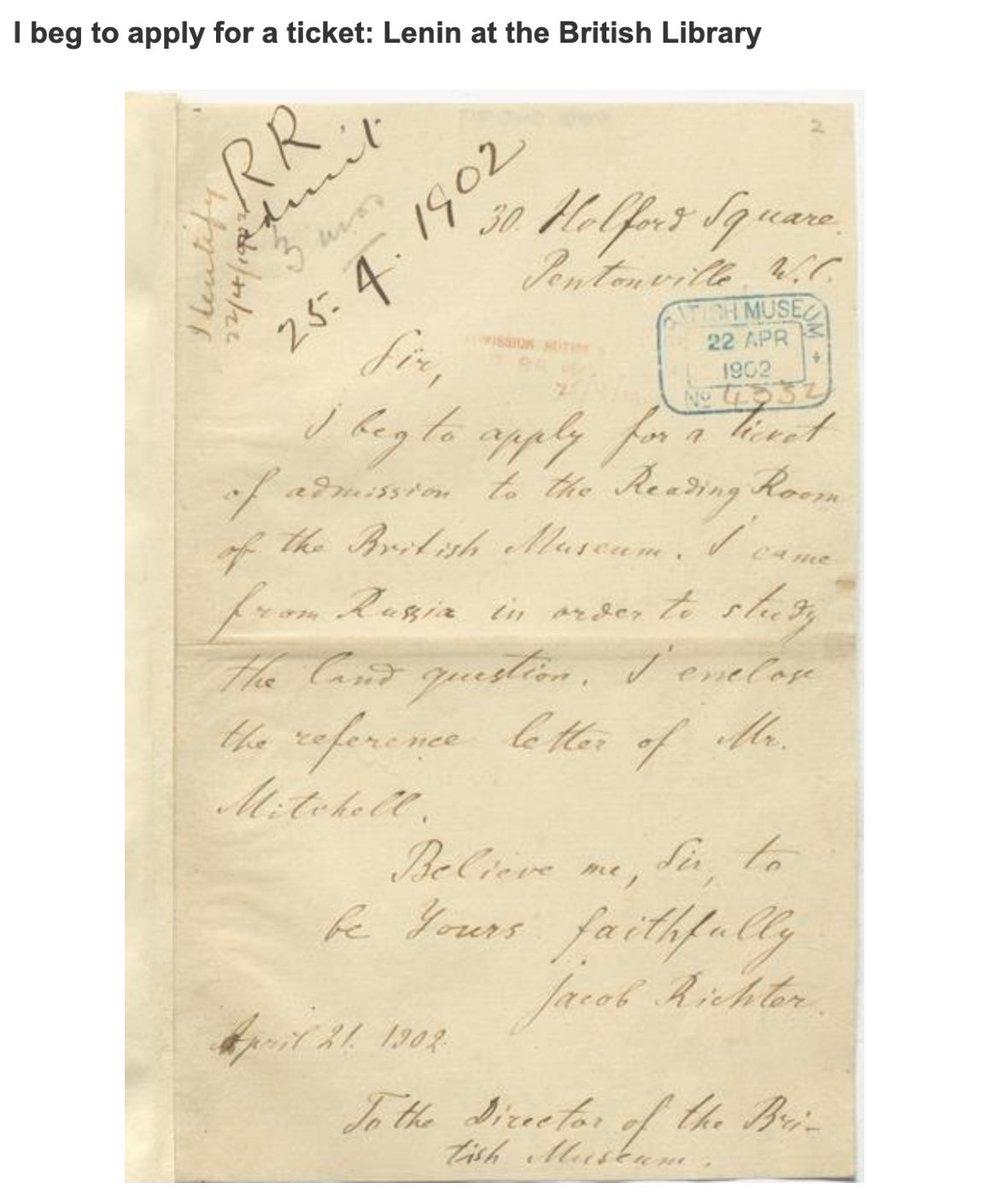 I beg to apply for a ticket: Lenin at the British Library
2
RR
Admit
3 mos
25. 4. 1902
Identify
22/4/1902
30. Holford Square.
Pentonville. W.C.
BRITISH MUSEUM
22 APR
1902
No 4332
Sir,
I beg to apply for a ticket
of admission to the Reading Room
of the British Museum. I came
from Russia in order to study
the land question. I enclose
the reference letter of Mr.
Mitchell.
Believe me, Sir, to
be Yours faithfully
Jacob Richter.
April 21. 1902.
To the Director of the Bri-
tish Museum.